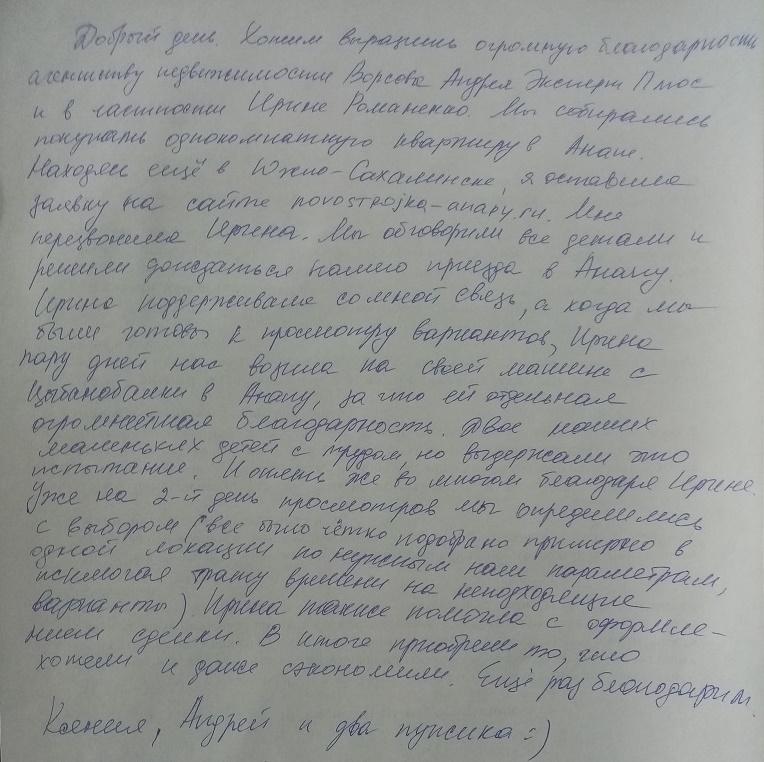 Добрый день. Хотим выразить огромную благодарность
агентству недвижимости Ворсова Андрея Эксперт Плюс
и в частности Ирине Романенко. Мы собирались
покупать однокомнатную квартиру в Анапе.
Находясь ещё в Южно-Сахалинске, я оставила
заявку на сайте novostrojka-anapy.ru. Мне
перезвонила Ирина. Мы обговорили все детали и
решили дождаться нашего приезда в Анапу.
Ирина поддерживала со мной связь, а когда мы
были готовы к просмотру вариантов, Ирина
пару дней нас возила на своей машине с
Цыбанобалки в Анапу, за что ей отдельная
огромнейшая благодарность. Двое наших
маленьких детей с трудом, но выдержали это
испытание. И опять же во многом благодаря Ирине.
Уже на 2-й день просмотров мы определились
с выбором (все было чётко подобрано примерно в
одной локации по нужным нам параметрам,
исключая трату времени на неподходящие
варианты). Ирина также помогла с оформле-
нием сделки. В итоге приобрели то, что
хотели и даже сэкономили. Ещё раз благодарим.
Ксения, Андрей и два пупсика :)